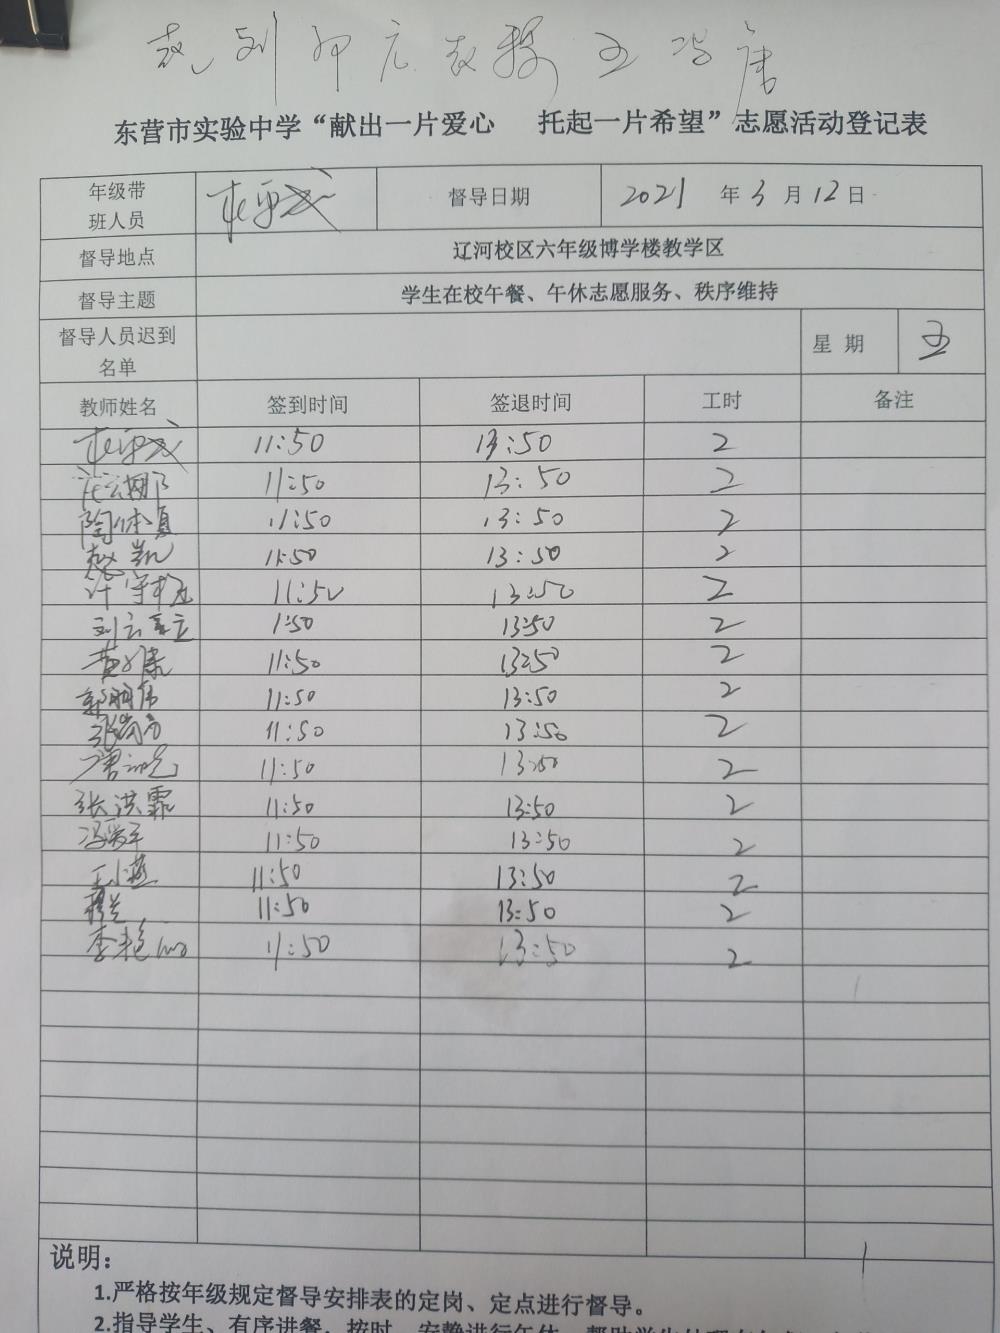 刘
东营市实验中学“献出一片爱心 托起一片希望”志愿活动登记表
年级带
班人员
督导日期 2021 年 3 月 12 日
督导地点 辽河校区六年级博学楼教学区
督导主题 学生在校午餐、午休志愿服务、秩序维持
督导人员迟到
名单
星 期 五
教师姓名 签到时间 签退时间 工时 备注
11:50 13:50 2
11:50 13:50 2
陶休夏 11:50 13:50 2
赵凯 11:50 13:50 2
许守 11:50 13:50 2
刘云 1:50 13:50 2
黄 11:50 13:50 2
郭鹏伟 11:50 13:50 2
张 11:50 13:50 2
唐 11:50 13:50 2
张洪霏 11:50 13:50 2
冯翠平 11:50 13:50 2
王小燕 11:50 13:50 2
11:50 13:50 2
李艳 11:50 13:50 2
说明：
1.严格按年级规定督导安排表的定岗、定点进行督导。
2.指导学生、有序进餐，按时、安静进行午休，帮助学生